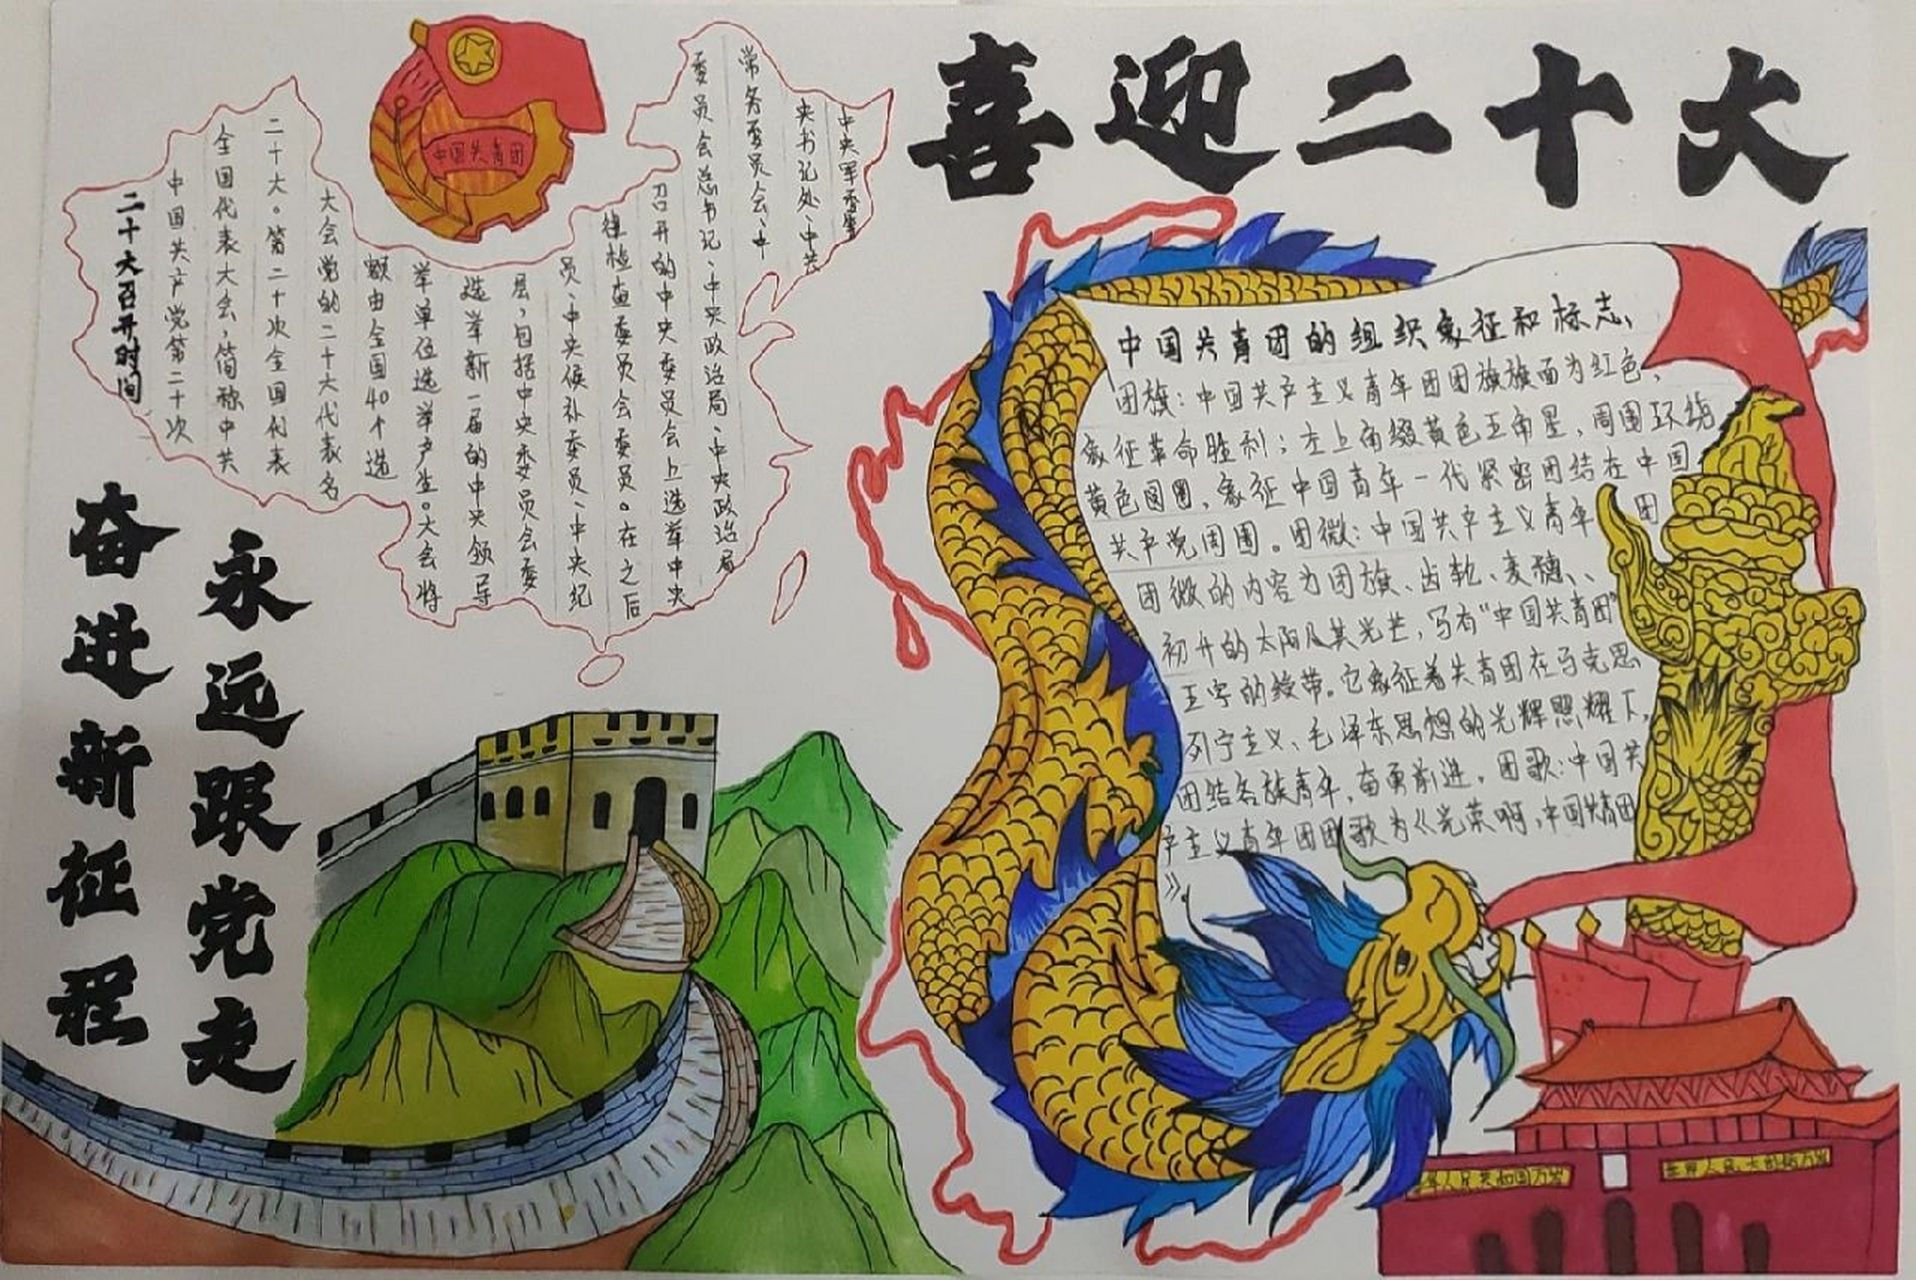 喜迎二十大
中国共青团
二十大召开时间
中国共产党第二十次
全国代表大会，简称中共
二十大。第二十次全国代表
大会党的二十大代表名
额由全国40个选
举单位选举产生。大会将
选举新一届的中央领导
层，包括中央委员会委
员、中央候补委员、中央纪
律检查委员会委员。在之后
召开的中央委员会上选举中央
委员会总书记、中央政治局、中央政治局
常务委员会、中
央书记处、中共
中央军委等
永远跟党走
奋进新征程
中国共青团的组织象征和标志、
团旗：中国共产主义青年团团旗旗面为红色，
象征革命胜利；左上角缀黄色五角星，周围环绕
黄色圆圈，象征中国青年一代紧密团结在中国
共产党周围。团微：中国共产主义青年团
团微的内容为团旗、齿轮、麦穗、、
初升的太阳及其光芒，写有“中国共青团”
五字的绶带。它象征着共青团在马克思
列宁主义、毛泽东思想的光辉照耀下，
团结各族青年，奋勇前进。团歌：中国共
产主义青年团团歌为《光荣啊，中国共青团
》。
华人民共和国万岁
世界人民大团结万岁